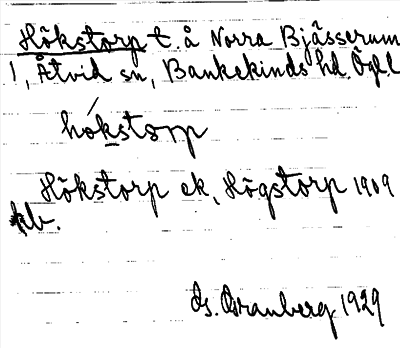 Hökstorp t. å Norra Bjässerum
1, Åtvid sn, Bankekinds hd, Ögl.
hókstorp
Hökstorp ek, Högstorp 1909
kb.
Granberg 1929